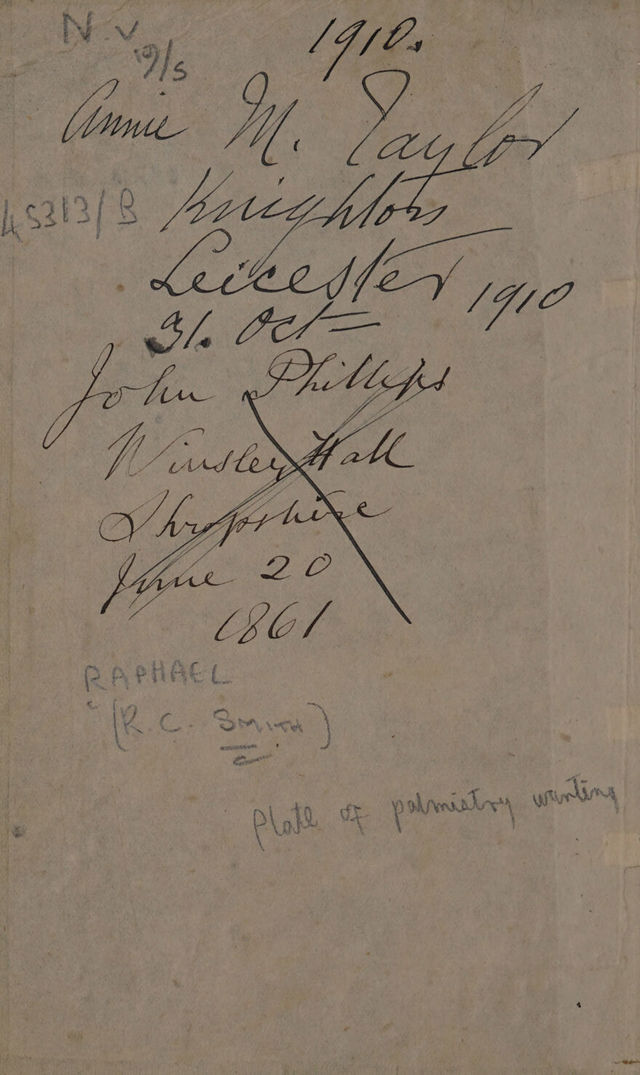 N.V
19/5
1910.
Annie M. Taylor
45313/B
Knighton
Leicester 1910
31. Oct
John Phillips
Winsley Hall
Shropshire
June 20
1861
RAPHAEL
(R. C. SMITH)
Plate of palmistry wanting